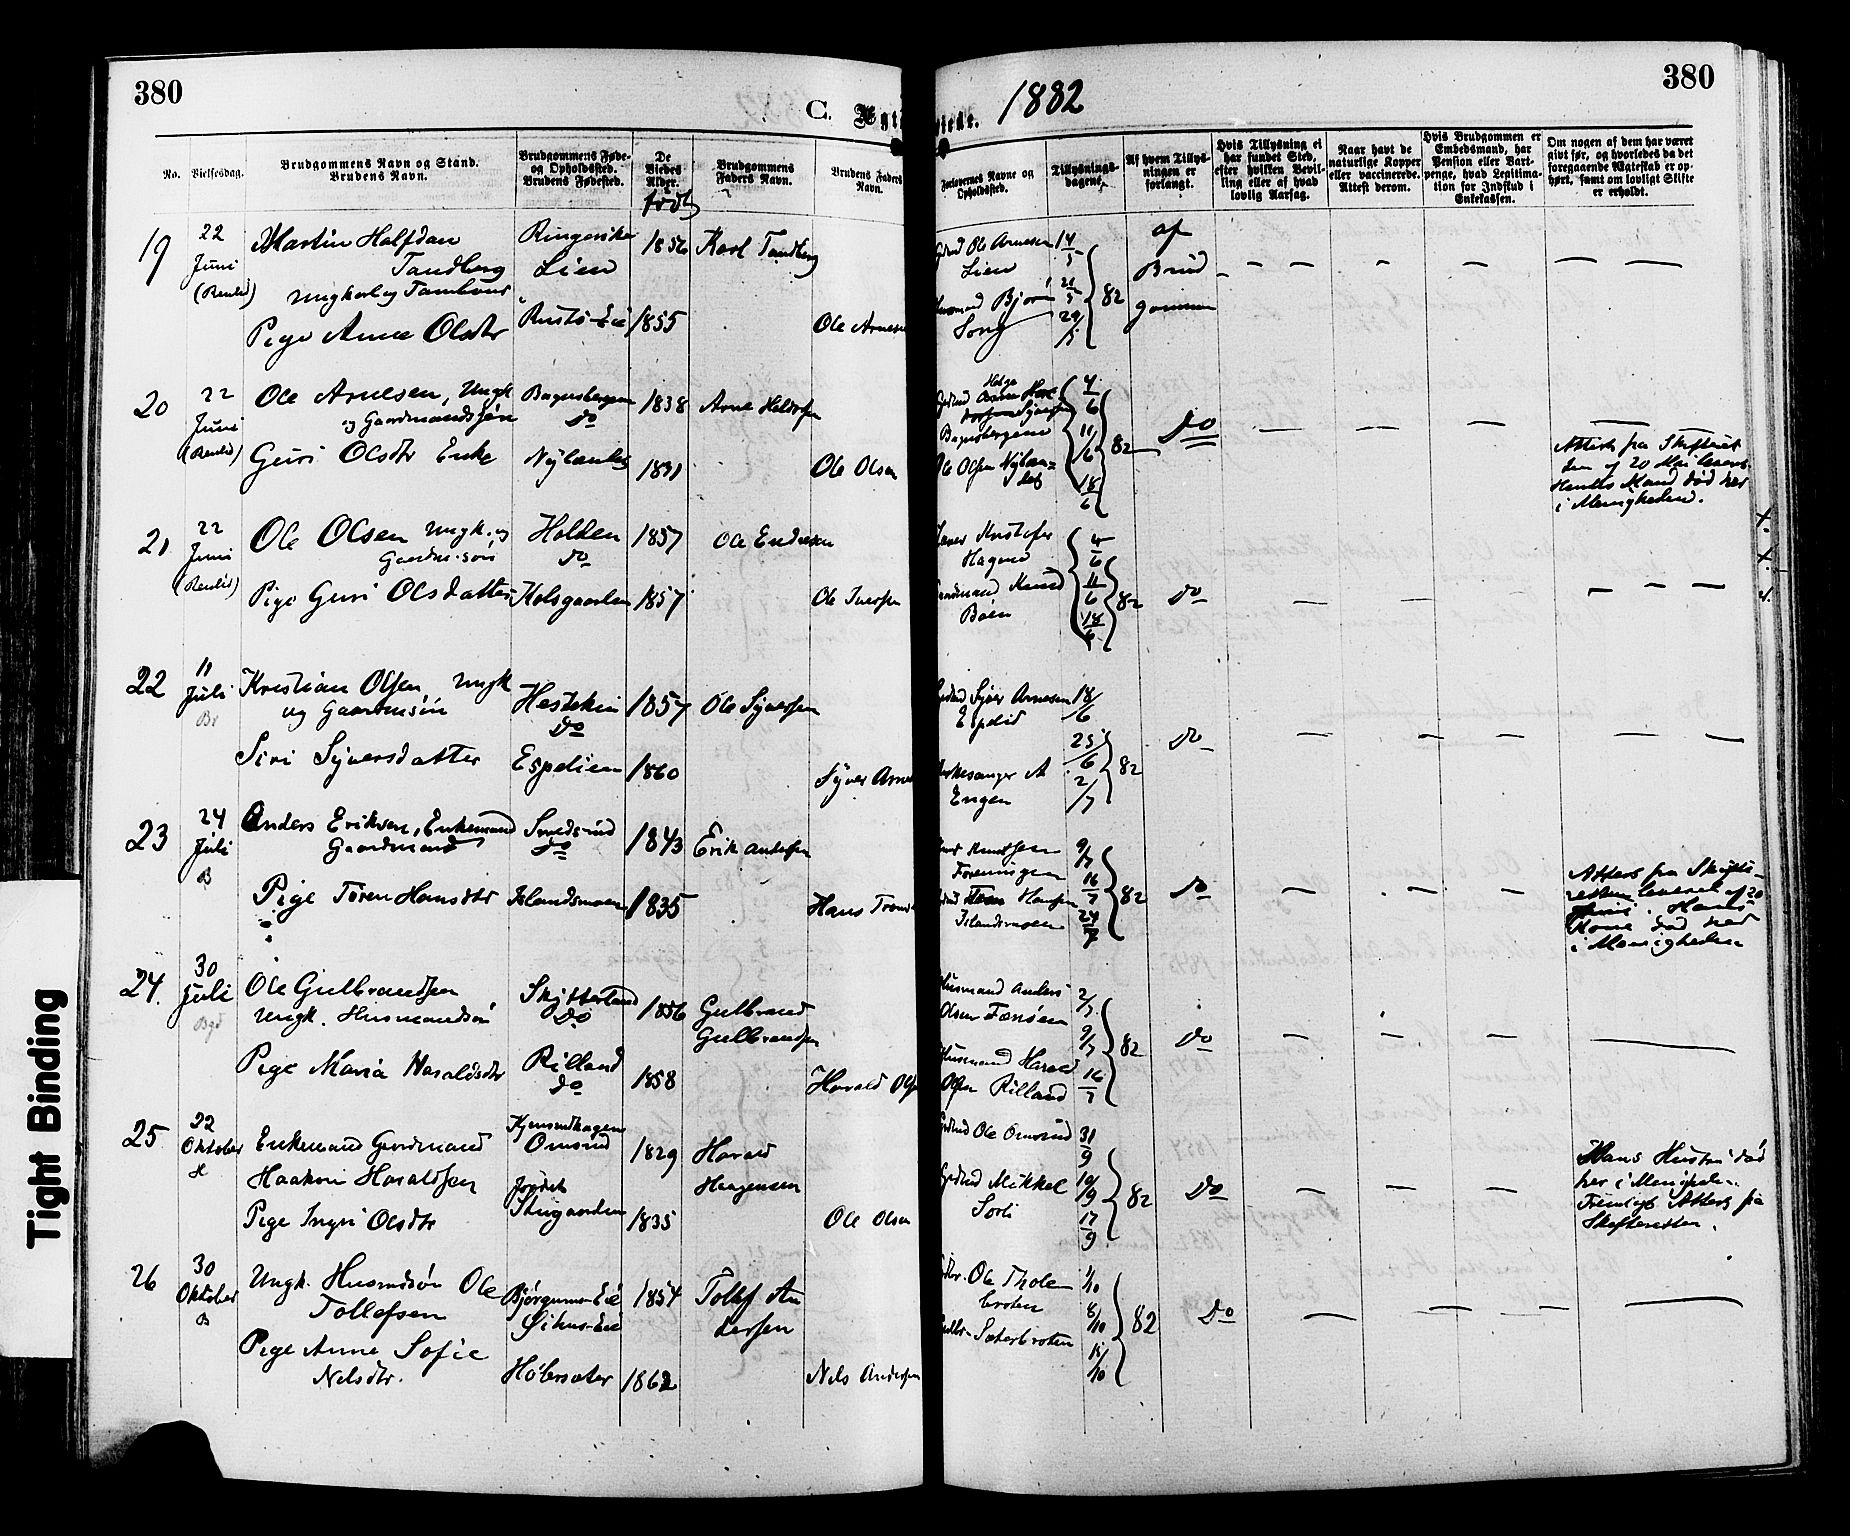 380
C. Ægt
No.
Vielsesdag.
Brudgommens Navn og Stand.
Brudens Navn.
Brudgommens Føde-
og Opholdssted.
Brudens Fødested.
De
Viedes
Alder.
født
Brudgommens
Faders Navn.
Brudens Faders
Navn.
19
22
Juni
(Renlid)
Martin Halfdan
Tandberg
Ungkarl og Tambour
Pige Anne Olsdtr
Ringerike
Lien
Rusts-Eie
1856
1855
Karl Tandberg
Ole Arnesen
20
22
Juni
(Renlid)
Ole Arnesen, Ungk
og Gaardmandssøn
Guri Olsdtr Enke
Bagnsbergene
do
Nylandet
1838
1831
Ole Olsen
21
22
Juni
(Renlid)
Ole Olsen Ungk. og
Gaardm.søn
Pige Guri Olsdatter
Holden
do
Kolsgaarden
1857
1857
Ole Endresen
Ole Iversen
22
11
Juli
Br
Kristian Olsen, Ungk
og Gaardmsøn
Siri Syversdatter
Hestekin
Do
Espelien
1857
1860
Ole Syversen
Syver Arne
23
24
Juli
B
Anders Eriksen, Enkemand
Gaardmand
Pige Tøren Hansdtr
Smedsrud
do
Islandsmoen
1843
1835
Erik Andersen
Hans Trond
24.
30
Juli
Bgd
Ole Gulbrandsen
Ungk. Husmandsøn
Pige Maria Haraldsdtr
Skjitterland
Do
Rilland
do
1856
1858
Gulbrand
Gulbrandsen
Harald Olsen
25
22
Oktober
H
Enkemand Gaardmand
Haakon Haraldsen
Pige Ingri Olsdtr
Omsrud
Stugaarden
1829
1835
Harald
Haagensen
Ole Olsen
26
30
Oktober
B
Ungk. Husmdsøn Ole
Tollefsen
Pige Anne Sofie
Nelsdtr.
Bjørgums-Eie
Høbersæter
1854
1862
Tollef An
dersen
Nels Andersen
380
1882
Forlovernes Navne og
Opholdssted.
Tillysnings-
dagene.
Af hvem Tillys-
ningen er
forlangt.
Hvis Tillysning ei
har fundet Sted,
efter hvilken Bevil-
ling eller af hvad
lovlig Aarsag.
Naar havt de
naturlige Kopper
eller vaccinerede.
Attest derom.
Hvis Brudgommen er
Embedsmand, har
Pension eller Vart-
penge, hvad Legitima-
tion for Indskud i
Enkekassen.
Om nogen af dem har været
givt før, og hvorledes da det
foregaaende Ægteskab er op-
hørt, samt om lovligt Skifte
er erholdt.
Ole Arnesen
Lien
Bjørn
Song
14/5
21/5
29/5
82
af
Brud
gommen
Helge
Bagnsbergene
Ole Olsen Nylan-
det
4/6
11/6
18/6
82
Do
Attest fra Skifteret
ten af 20 Mai leveret
Hendes Mand død her
i Menigheden.
Kristofer
Hagene
Knud
Bøen
4/6
11/6
18/6
82
Do
Syver Arnesen
Espelid
Kirkesanger A
Engen
18/6
25/6
2/7
82
Do
Knudsen
Foreningen
Hansen
Islandsmoen
9/7
16/7
24/7
82
Do
Attest fra Skifte-
retten leveret af 20
Juni. Hans
Kone død her
i Menigheden
Husmand Anders
Olsen
Husmand Harald
Olsen Rilland
2/7
9/7
16/7
82
Do
Ole Omsrud
Mikkel
Sorli
31/9
10/9
17/9
82
Do
Hans Hustru død
her i Menighden.
Fremlagt Attest fra
Skifteretten.
Ole Thole
broten
Sæterbroten
1/10
8/10
15/10
82
Do
Tight Binding